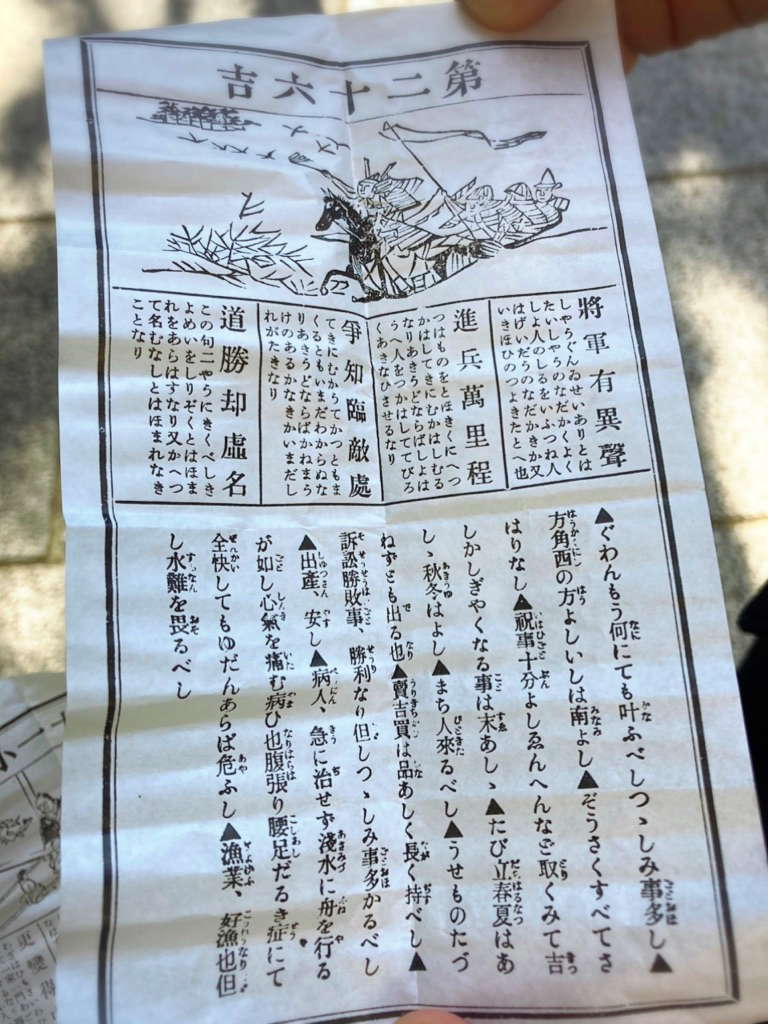 第二十六吉
將軍有異聲
しやうぐんゐせいありとは
たいしやうのなだかくよく
しよ人のしるをいふつね人
はげいだうのなだかきか又
いきほひのつよきたとへ也
進兵萬里程
つはものをとほきくにへつ
かはしてきにむかはしむる
なりあきうどならばしよは
うへ人をつかはしててびろ
くあきなひさせるなり
爭知臨敵處
てきにむかうてかつともま
くるともいまだわからぬな
りあきうどならばかねまう
けのあるかなきかいまだし
れがたきなり
道勝却虛名
この句二やうにきくべしき
よめいをしりぞくとはほま
れをあらはすなり又かへつ
て名むなしとはほまれなき
ことなり
▲ぐわんもう何にても叶ふべしつゝしみ事多し▲
方角西の方よしいしは南よし▲ぞうさくすべてさ
はりなし▲祝事十分よしゑんへんなど取くみて吉
しかしぎやくなる事は末あしゝ▲たび立春夏はあ
しゝ秋冬はよし▲まち人來るべし▲うせものたづ
ねずとも出る也▲賣吉買は品あしく長く持べし▲
訴訟勝敗事、勝利なり但しつゝしみ事多かるべし
▲出產、安し▲病人、急に治せず淺水に舟を行る
が如し心氣を痛む病ひ也腹張り腰足だるき症にて
全快してもゆだんあらば危ふし▲漁業、好漁也但
し水難を畏るべし